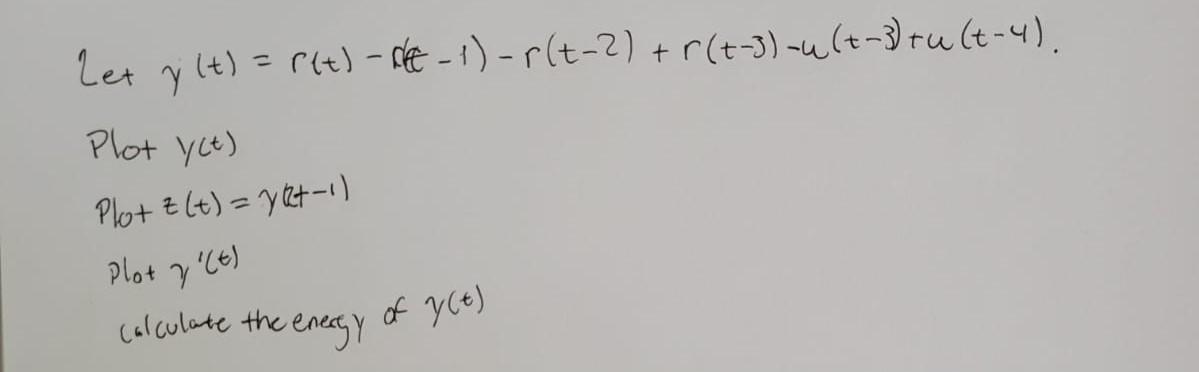 Let y(t) = r(t) - r(t-1) - r(t-2) + r(t-3) - u(t-3) + u(t-4).
Plot y(t)
Plot z(t) = y(2t-1)
Plot y'(t)
Calculate the energy of y(t)